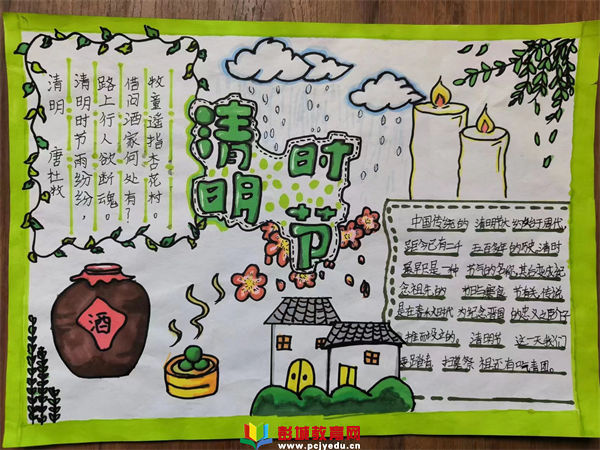 清明 唐杜牧
清明时节雨纷纷，
路上行人欲断魂。
借问酒家何处有？
牧童遥指杏花村。
清明
时节
酒
中国传统的 清明节大约始于周代,
距今已有二千 五百多年的历史,清时
最早只是一种 节气的名称,其后变成纪
念祖先的 节日与寒食 节有关,传说
是在春秋时代 为纪念 的忠义之臣介子
推而设立的。 清明节 这一天我们
要踏青 扫墓祭 祖还有吃青团。
彭城教育网
www.pcjyedu.cn